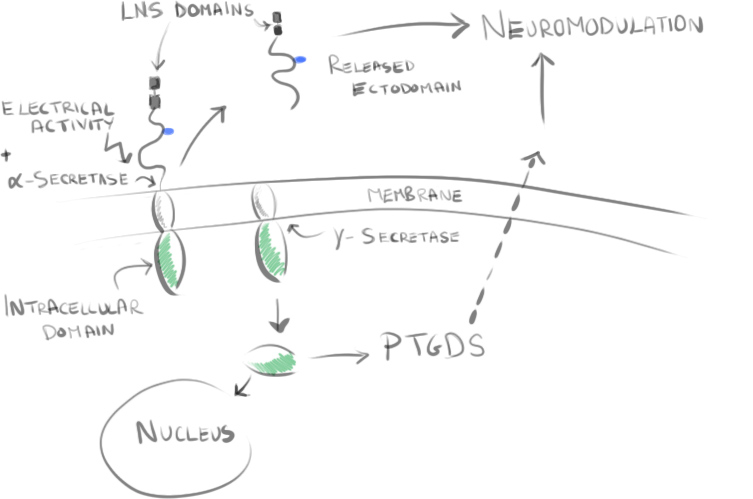 LNS DOMAINS
NEUROMODULATION
RELEASED
ECTODOMAIN
ELECTRICAL
ACTIVITY
+
α-SECRETASE
MEMBRANE
γ-SECRETASE
INTRACELLULAR
DOMAIN
PTGDS
NUCLEUS